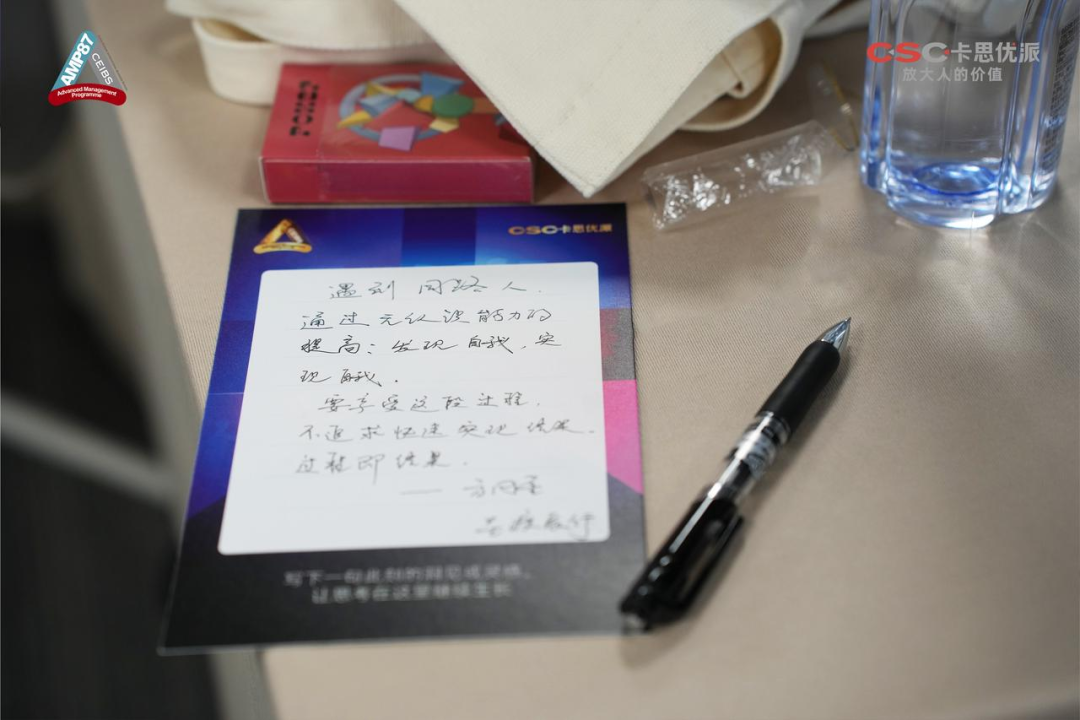 AMP87
CEIBS
Advanced Management
Programme
CSC卡思优派
放大人的价值
CSC卡思优派
遇到同路人.
通过元认识能力的
提高:发现自我,实
现自我.
要享受这段过程.
不追求快速实现结果.
过程即结果.
写下一句此刻的洞见或灵感,
让思考在这里继续生长